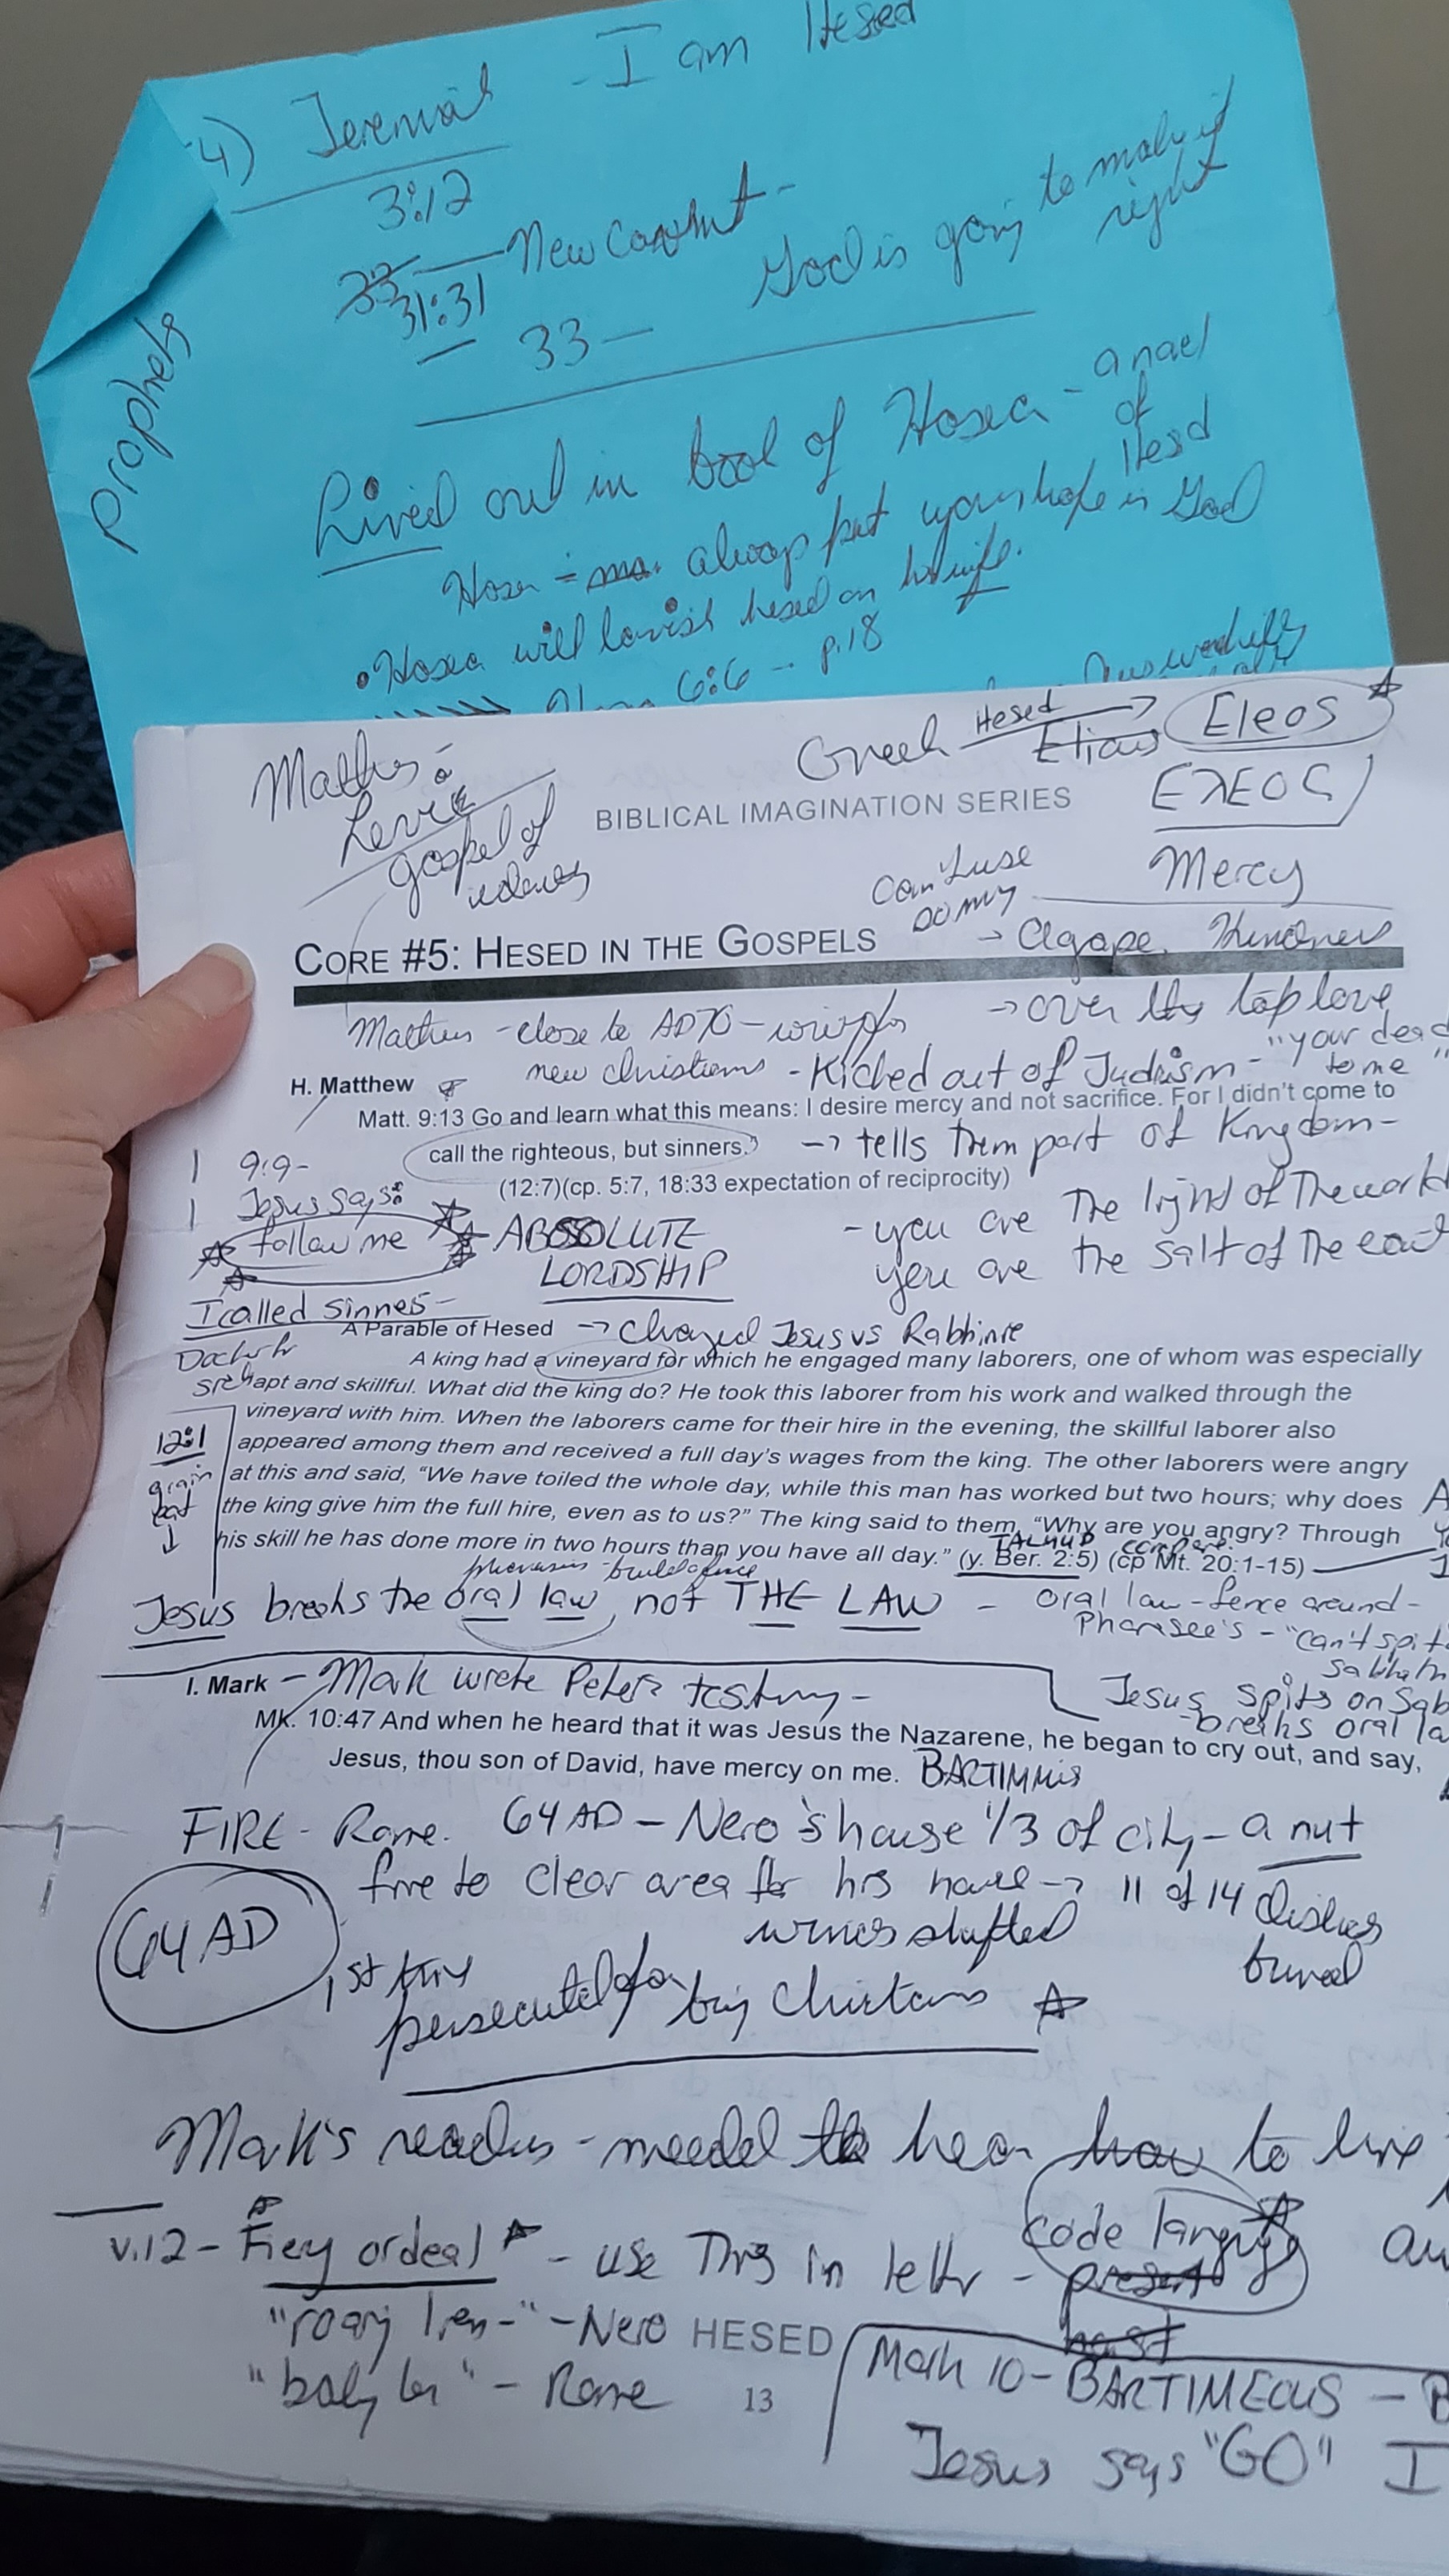 4) Jeremiah - I am Hesed
3:12
31:31 New Cov - God is going to make it right
33 -
Prophets
Lived out in book of Hosea - a nael of Hesd
Hosea = always put your hope in God
• Hosea will lavish hesed on his wife.
6:6 - p.18
Greek Hesed → Eleos
ΕλΕΟς
Mercy
BIBLICAL IMAGINATION SERIES
Levi
gospel of
can't use
→ agape Kindness
CORE #5: HESED IN THE GOSPELS
- close to AD 70 - → over the top love
new christians - Kicked out of Judaism - "your dead to me"
H. Matthew
Matt. 9:13 Go and learn what this means: I desire mercy and not sacrifice. For I didn't come to
call the righteous, but sinners." → tells them part of Kingdom -
(12:7)(cp. 5:7, 18:33 expectation of reciprocity)
9:9 -
Jesus says:
follow me - ABSOLUTE LORDSHIP
- you are the light of The world
you are the salt of The eart
I called sinnes -
A Parable of Hesed → Jesus vs Rabbinic
A king had a vineyard for which he engaged many laborers, one of whom was especially
apt and skillful. What did the king do? He took this laborer from his work and walked through the
vineyard with him. When the laborers came for their hire in the evening, the skillful laborer also
appeared among them and received a full day's wages from the king. The other laborers were angry
at this and said, "We have toiled the whole day, while this man has worked but two hours; why does
the king give him the full hire, even as to us?" The king said to them, "Why are you angry? Through
his skill he has done more in two hours than you have all day." (y. Ber. 2:5) (cp Mt. 20:1-15)
TALMUD compare
12:1
grain
eat
Jesus breaks the oral law, not THE LAW - oral law - fence around -
Pharisee's - "can't spit
Jesus spits on Sab
breaks oral la
I. Mark - Mark wrote Peter's testimony -
MK. 10:47 And when he heard that it was Jesus the Nazarene, he began to cry out, and say,
Jesus, thou son of David, have mercy on me. BARTIMMIS
FIRE - Rome. 64 AD - Nero's house 1/3 of city - a nut
fire to clear area for his house → 11 of 14
winds shifted
64 AD
1st time
persecuted for being Christians
Mark's readers - needed to hear how to live
v.12 - Fiery ordeal - use This in letter - code language
"roaring lion" - Nero
HESED
"babylon" - Rome
13
Mark 10 - BARTIMEOUS - B
Jesus says "GO" I